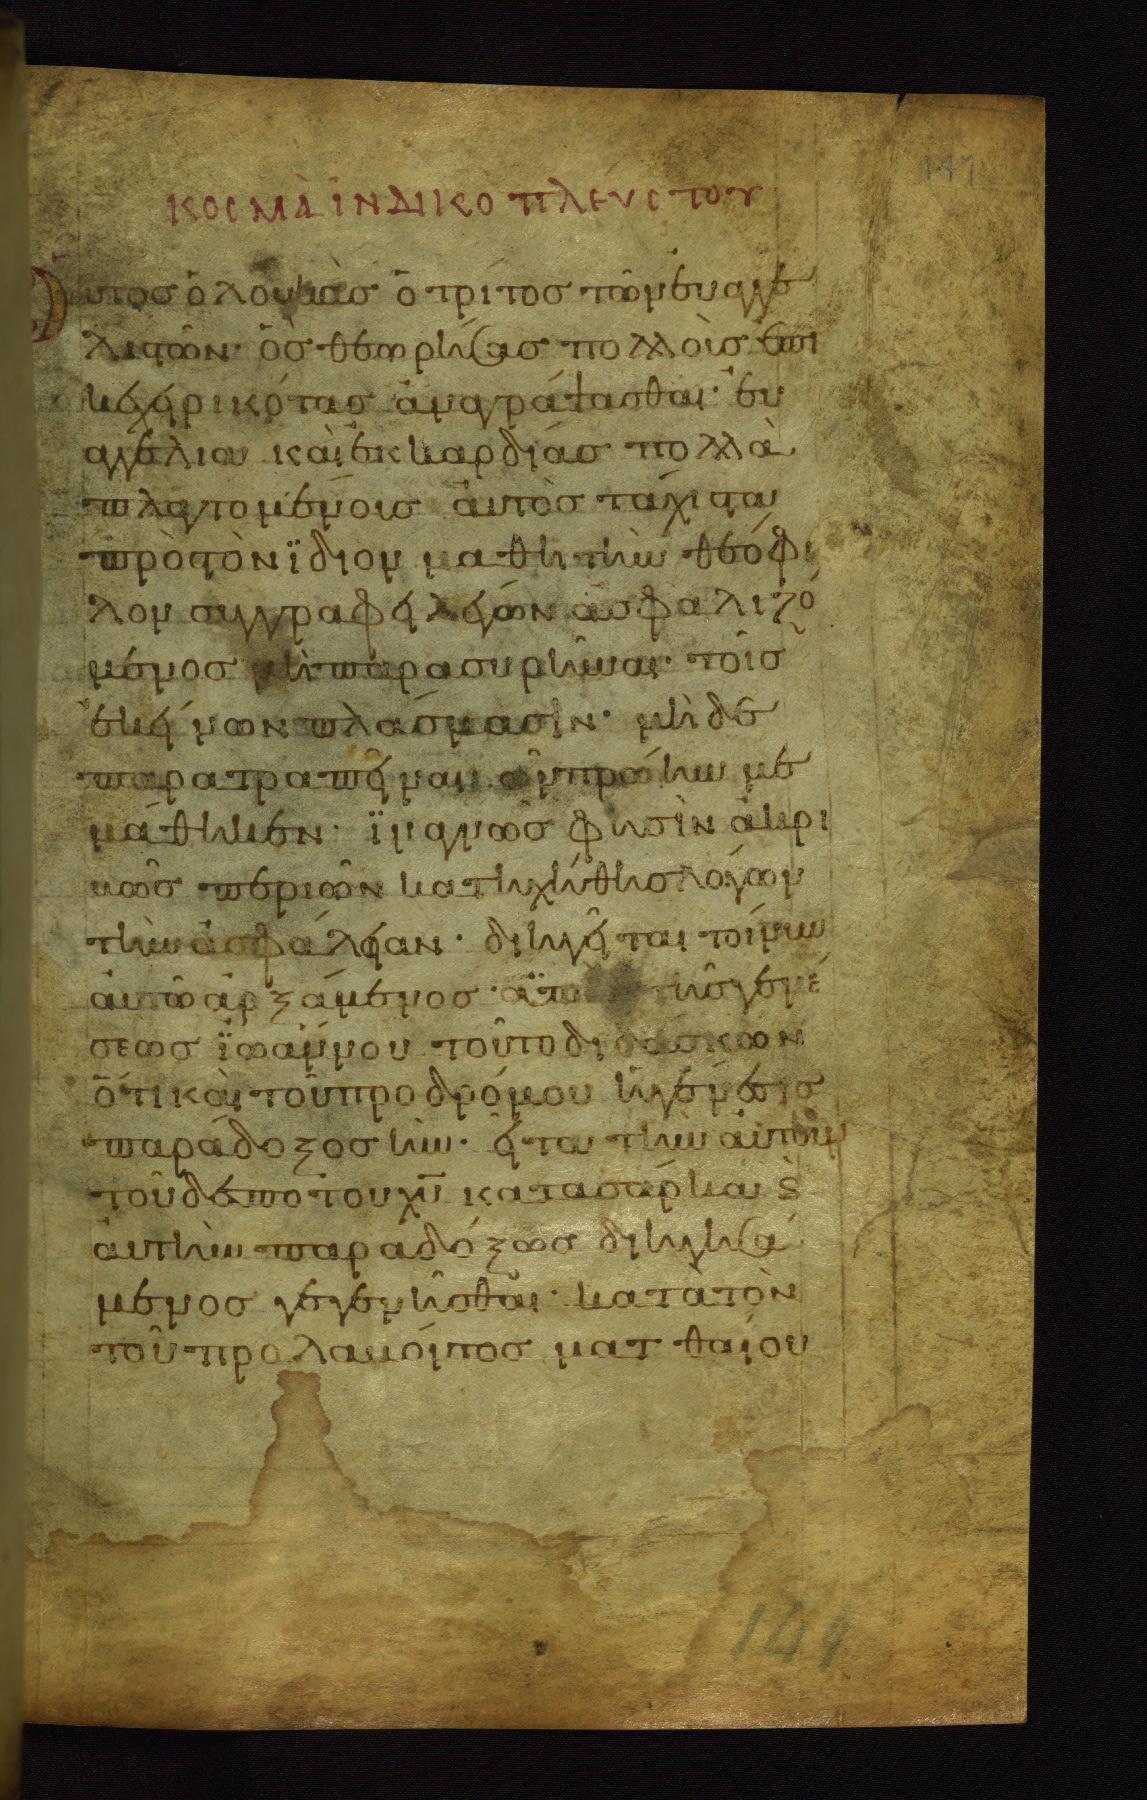 147
ΚΟΣΜᾶ ἰΝΔΙΚΟΠΛΕύΣΤΟΥ
Οὗτος ὁ λουκὰς ὁ τρίτος τῶν ἐυαγγε
λιστῶν· ὃς θεωρήσας πολλοὺς ἐπι
κεχειρικότας ἀναγράψασθαι· ἐυ
αγγέλιον καὶ ἐκ καρδίας πολλὰ
πλαττομένοις ἀυτὸς τάχιστα
πρὸς τὸν ΐδιον μαθητὴν θεόφι
λον συγγράφει λέγων ἀσφαλιζό
μενος μὴ παρασυρῆναι· τοῖς
ἐκείνων πλάσμασιν· μὴδὲ
παρατραπῆναι ὧν πρώην με
μάθηκεν· ΐνα γνῶς φησὶν ἀκρι
κῶς περὶ ὧν κατηχήθης λόγων
τὴν ἀσφάλειαν· διηγεῖται τοίνυν
ἀυτῶ ἀρξάμενος ἀπὸ τῆς γενέ
σεως ϊωάννου τοῦτο διδάσκων
ὅτι καὶ τοῦ προδρόμου ἡ γέννησις
παράδοξος ἦν· εἶτα τὴν ἀυτοῦ
τοῦ δεσπότου χῦ κατὰ σάρκα ϛ
ἀυτὴν παραδόξως διηγησά
μενος γεγενῆσθαι· κατὰ τὸν
τοῦ προλαβόντος ματθαίου
149